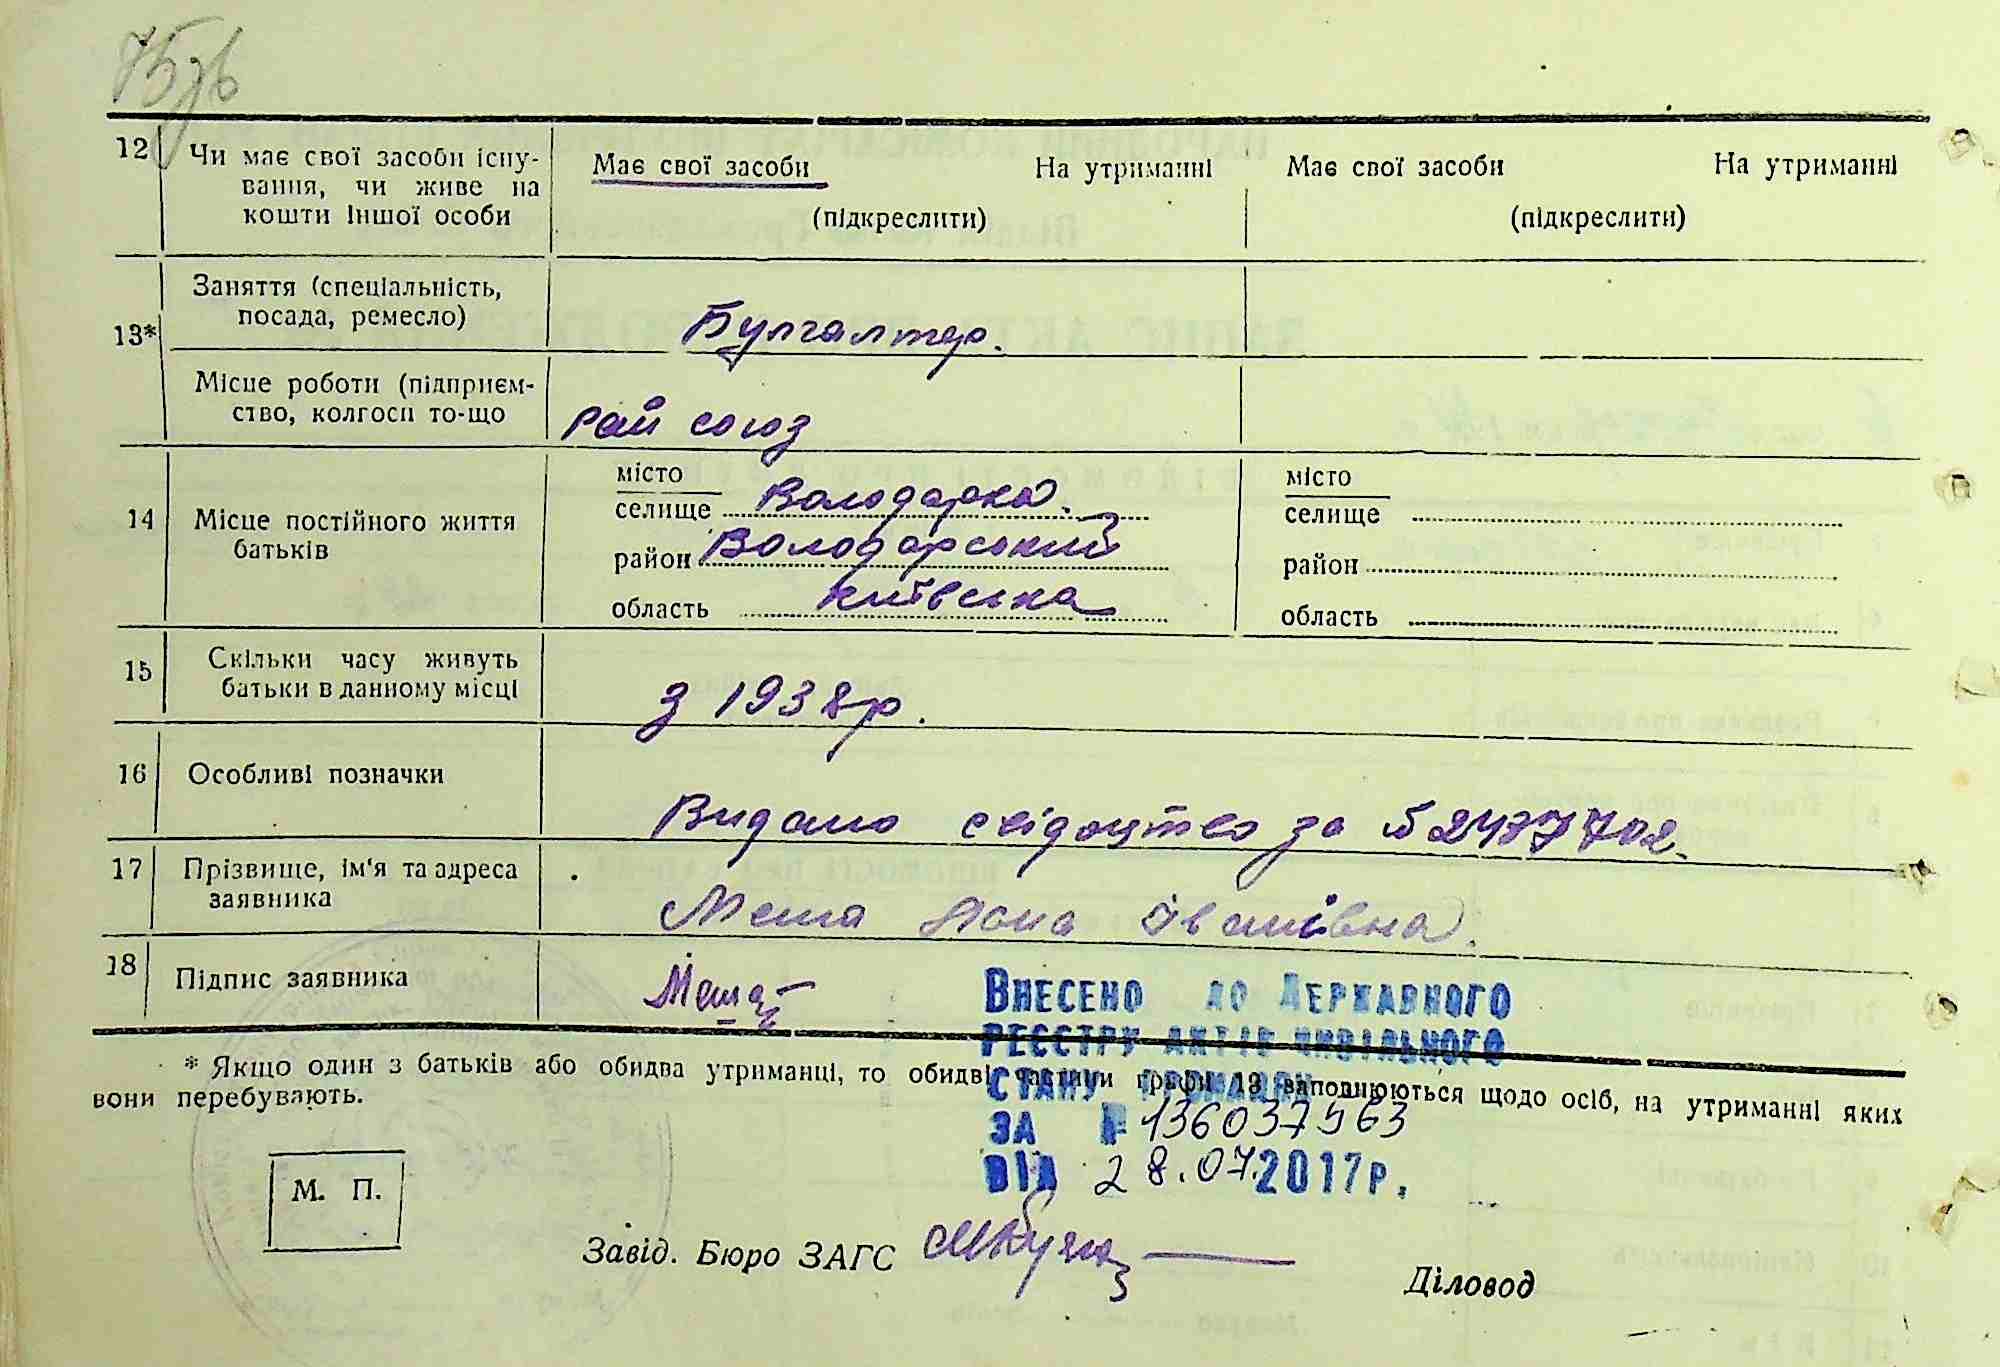 12 Чи має свої засоби існу-
вання, чи живе на
кошти іншої особи
Має свої засоби На утриманні
(підкреслити)
Має свої засоби На утриманні
(підкреслити)
13* Заняття (спеціальність,
посада, ремесло)
Булгалтер.
Місце роботи (підприєм-
ство, колгосп то-що
рай союз
14 Місце постійного життя
батьків
місто
селище Володарка.
район Володарський
область київська
місто
селище
район
область
15 Скільки часу живуть
батьки в данному місці
з 1938р.
16 Особливі позначки
Видано свідоцтво за
17 Прізвище, ім'я та адреса
заявника
Іванівна.
18 Підпис заявника
* Якщо один з батьків або обидва утриманці, то обидві частини графи 13 заповнюються щодо осіб, на утриманні яких
вони перебувають.
Внесено до Державного
реєстру актів цивільного
стану громадян
за № 136037563
від 28.07.2017р.
М. П.
Завід. Бюро ЗАГС
Діловод